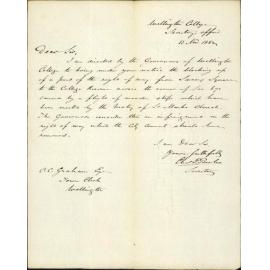 Wellington College
Secretary's Office
11 Nov 1882
Dear Sir,
I am directed by the Governors of Wellington
College to bring under your notice the blocking up
of a part of the right of way from Surrey Square
to the College Reserve across the corner of Sec
caused by a flight of wooden steps which have
been erected by the Vestry of St Marks Church.
The Governors consider this an infringement on the
right of way which the City Council should have
removed.
I am Dear Sir
Yours faithfully
Chas P Powles
Secretary
C.C. Graham Esq
Town Clerk
Wellington